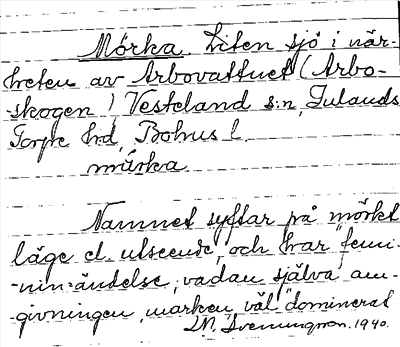 Mörka. Liten sjö i när-
heten av Arbovattnet (Arbo-
-skogen) Vesteland s:n, Inlands
Torpe hrd, Bohus l.
mǿrka.
Namnet syftar på mörkt
läge el. utseende, och har "femi-
-nin ändelse, vadan själva" om-
givningen, marken, väl "dominerat
M. Svenungson. 1940.